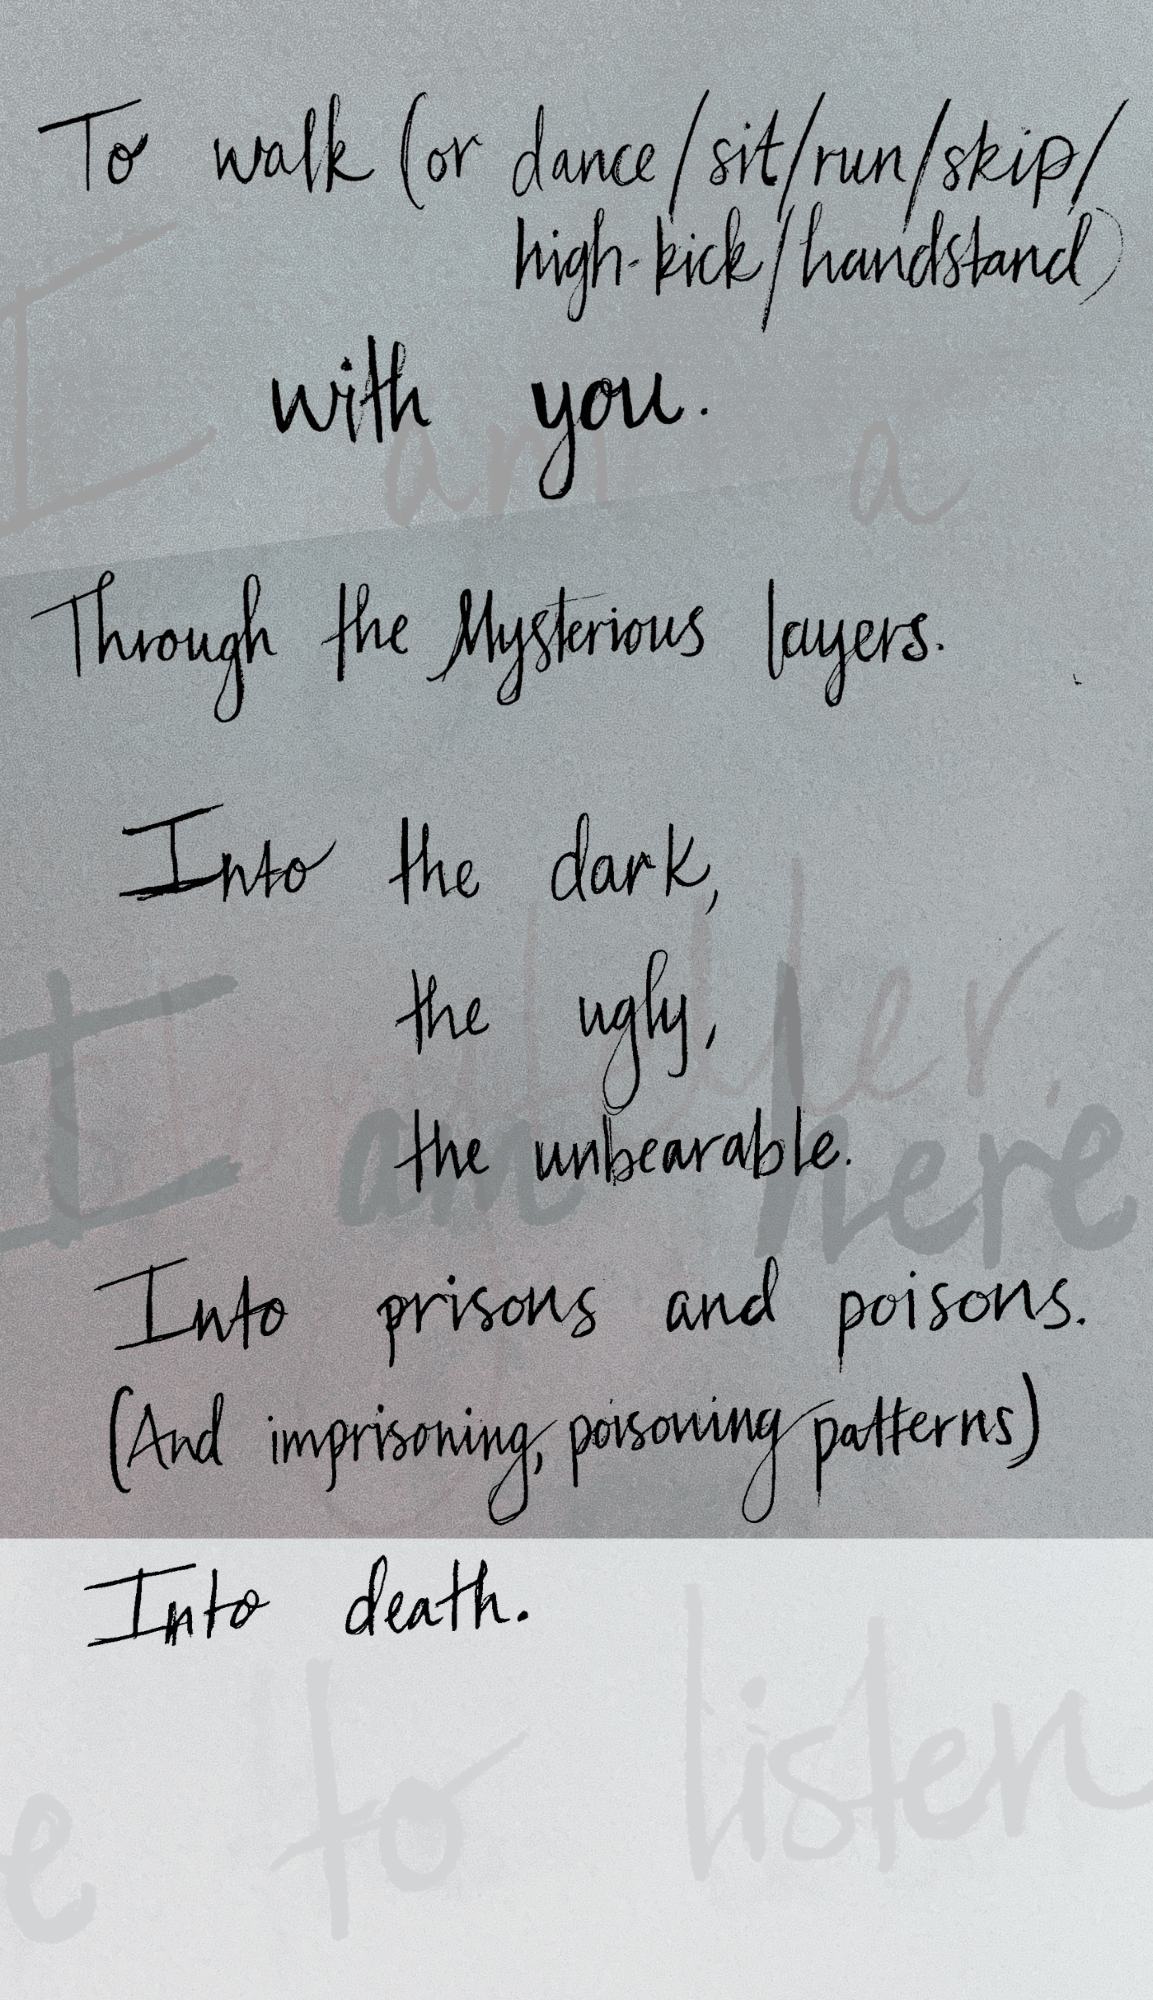 To walk (or dance/sit/run/skip/
high-kick/handstand)
with you.
I am a
Through the Mysterious layers.
Into the dark,
the ugly,
the unbearable.
I am here
Into prisons and poisons.
(And imprisoning, poisoning patterns)
Into death.
to listen